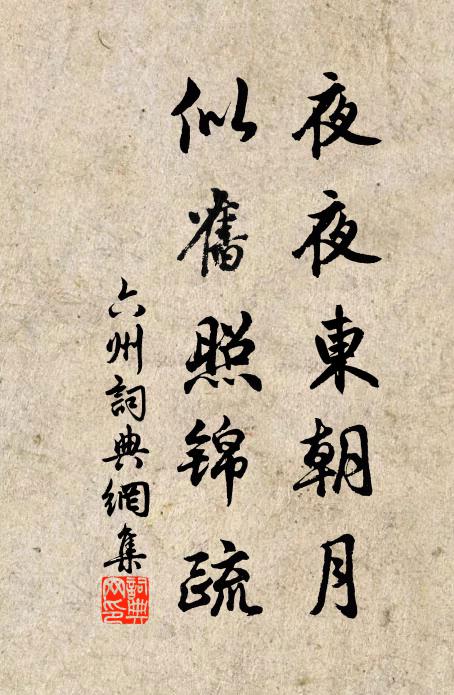 夜夜東朝月
似舊照錦疏
六州詞典網集
詞典
网印